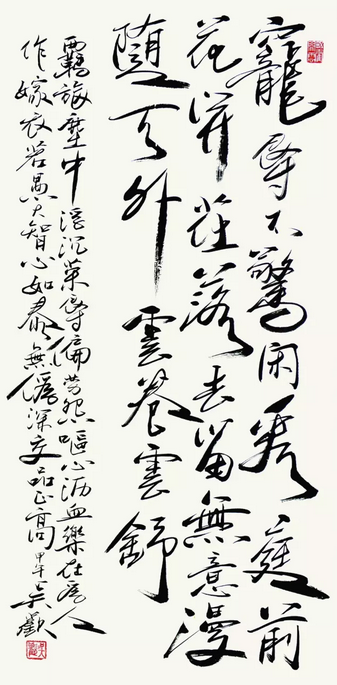 寵辱不驚闲看庭前
花開花落去留無意漫
随天外雲卷雲舒
羈旅塵中浮沉榮辱偏勞怨嘔心沥血樂在为人
作嫁衣若愚大智心如泰無深交品正高甲午吳歡